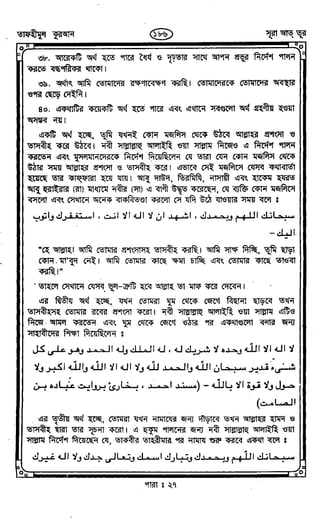 তাফহীমুল কুরআন
১৮৬
সূরা আত্ তূর
৩৮. আরেকটি অর্থ হতে পারে ধৈর্য ও দৃঢ়তার সাথে আপন প্রভুর নির্দেশ পালন
করতে বদ্ধপরিকর থাকো।
৩৯. অর্থাৎ আমি তোমাদের রক্ষণাবেক্ষণ করছি। তোমাদেরকে তোমাদের অবস্থার
ওপর ছেড়ে দেইনি।
৪০. একথাটির কয়েকটি অর্থ হতে পারে এবং এখানে সবগুলো অর্থ গ্রহণীয় হওয়া
অসম্ভব নয়।
একটি অর্থ হচ্ছে, তুমি যখনই কোন মজলিস থেকে উঠবে আল্লাহর প্রশংসা ও
তাসবীহ করে উঠবে। নবী সাল্লাল্লাহু আলাইহি ওয়া সাল্লাম নিজেও এ নির্দেশ পালন
করতেন এবং মুসলমানদেরকে নির্দেশ দিয়েছিলেন যে তারা যেন কোন মজলিস থেকে
উঠার সময় আল্লাহর প্রশংসা ও তাসবীহ করে। এভাবে সেই মজলিসে যেসব কথাবার্তা
হয়েছে তার কাফ্ফারা হয়ে যায়। আবু দাউদ, তিরমিযি, নাসায়ী এবং হাকেম হযরত
আবু হুরাইরার (রা) মাধ্যমে নবীর (সা) এ বাণী উদ্ধৃত করেছেন, যে ব্যক্তি কোন মজলিসে
বসলো এবং সেখানে অনেক বাকবিতণ্ডা করলো সে যদি উঠে যাওয়ার সময় বলে ঃ
سبحانك اللهم وبحمدك ، اشهد ان لا اله الا انت ، استغفرك واتوب
اليك -
"হে আল্লাহ! আমি তোমার প্রশংসাসহ তাসবীহ করছি। আমি সাক্ষ্য দিচ্ছি, তুমি ছাড়া
কোন মা'বুদ নেই। আমি তোমার কাছে ক্ষমা চাচ্ছি এবং তোমার কাছে তাওবা
করছি।"
তাহলে সেখানে যেসব ভুল-ত্রুটি হবে আল্লাহ তা মাফ করে দেবেন।
এর দ্বিতীয় অর্থ হচ্ছে, যখন তোমরা ঘুম থেকে জেগে বিছানা ছাড়বে তখন
তাসবীহসহ তোমার রবের প্রশংসা করো। নবী সাল্লাল্লাহু আলাইহি ওয়া সাল্লাম এটিও
নিজে আমল করতেন এবং ঘুম থেকে জেগে ওঠার পর একথাগুলো বলার জন্য
সাহাবীদের শিক্ষা দিয়েছিলেন ঃ
لا اله الا الله وحده لا شريك له ، له الملك وله الحمد وهو على كل
شىء قدير سبحان الله والحمد لله ولا اله الا الله والله اكبر ولا
حول ولا قوة الا بالله - (مسند احمد ، بخارى بروايت عباده بن
الصامت)
এর তৃতীয় অর্থ হচ্ছে, তোমরা যখন নামাযের জন্য দাঁড়াবে তখন আল্লাহর হামদ ও
তাসবীহ দ্বারা তার সূচনা করো। এ হুকুম পালনের জন্য নবী সাল্লাল্লাহু আলাইহি ওয়া
সাল্লাম নির্দেশ দিয়েছেন যে, তাকবীর তাহরীমার পর নামায শুরু করবে একথা বলে ঃ
سبحانك اللهم وبحمدك وتبارك اسمك وتعالى جدك ولا اله غيرك
পারা ঃ ২৭